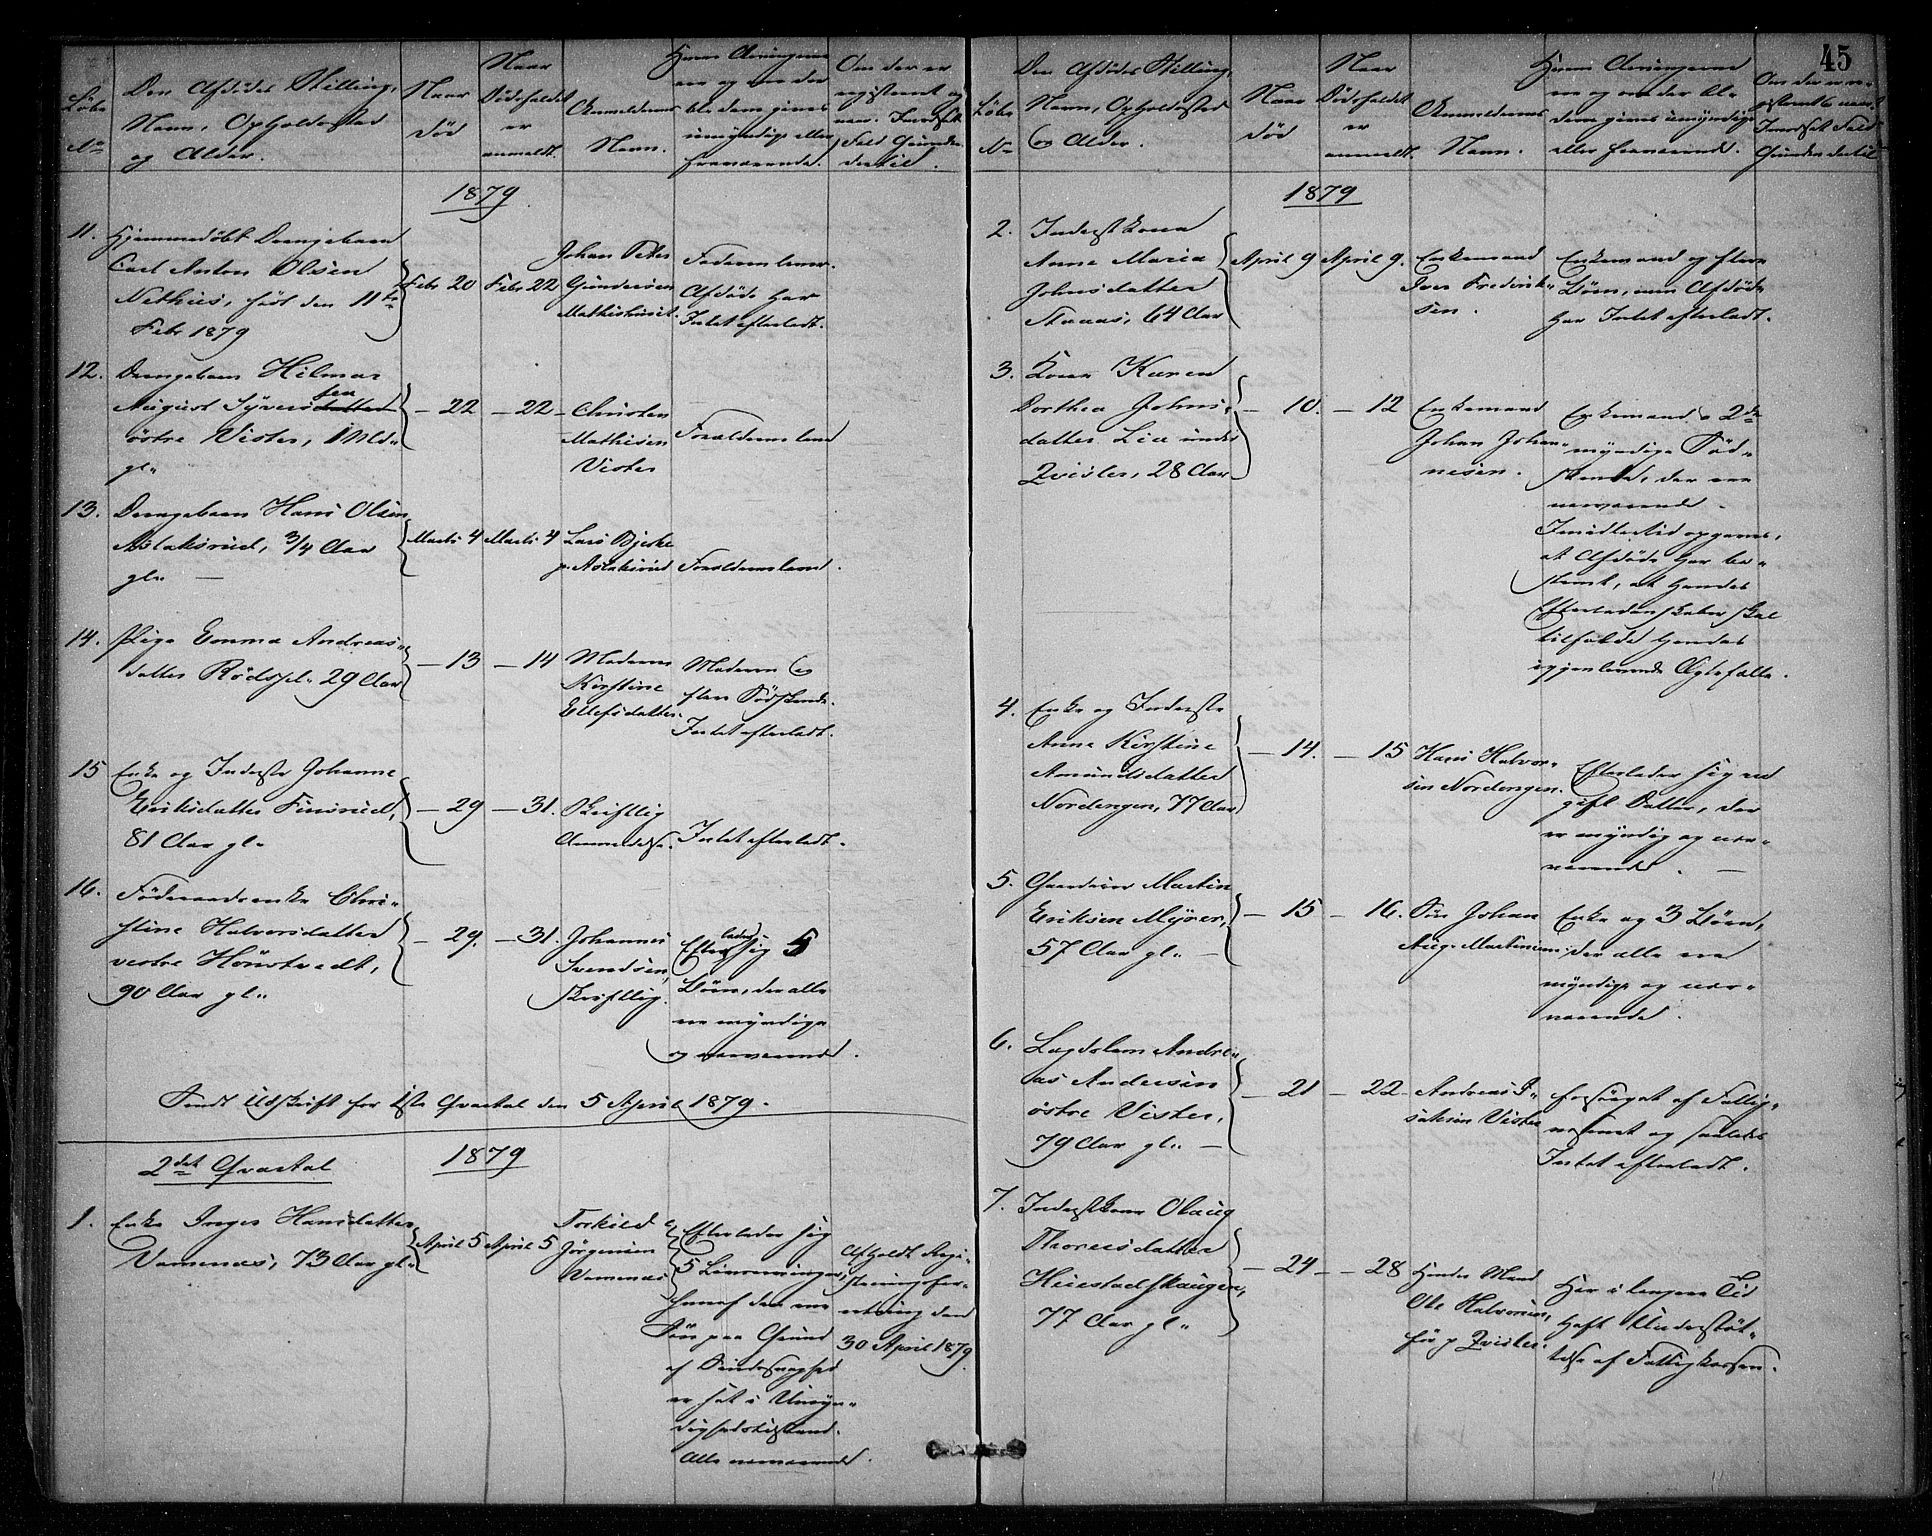 45
Löbe
No
Den Afdödes Stilling,
Navn, Opholdssted
og Alder.
Naar
död
Naar
Dödsfaldet
er
anmeldt.
Anmelderens
Navn.
Hvem Arvingerne
ere og om der
bla dem gives
umyndige eller
fraværende.
Om der er
registreret og
nam. I modsat
Fald Grunden
dertil.
1879
11. Hjemmedöbt Drengebarn
Carl Anton Olsen
Nethus, föd den 11te
Febr 1879
Febr 20
Febr 22
Johan Peter
Gundersen
Mathishuset.
Faderen lever.
Afdöde har
Intet efterladt.
12. Drengebarn Hilmar
August Syversen
östre Vister, 1 Md.
gl.
- 22
- 22
Christen
Mathisen
Vister
Forældrene leve
13. Drengebarn Hans Olsen
Aslaksrud, 3/4 Aar
gl. -
Marts 4
Marts 4
Lars Bjerke
p. Aslaksrud
Forældrene leve.
14. Pige Emma Andreas-
datter Rödspl. 29 Aar
- 13
- 14
Moderen
Kirstine
Ellefsdatter.
Moderen og
flere Södskende.
Intet efterladt.
15 Enke og Inderste Johanne
Eriksdatter Finsrud,
81 Aar gl.
- 29
- 31.
Skriftlig
Anmeldelse.
Intet efterladt.
16. Föderaadsenke Chri-
stine Halvorsdatter
vestre Hönstvedt,
90 Aar gl.
- 29.
- 31.
Johannes
Svendsen,
skriftlig.
Efterlader sig 5
Börn, der alle
ere myndige
og nærværende.
Sendt Udskrift for 1ste Qvartal den 5 April 1879.
2det Qvartal
1879
1. Enke Inger Hansdatter
Vamenæs, 73 Aar gl.
April 5
April 5
Torkild
Jörgensen
Vamenæs
Efterlader sig
5 Livsarvinger,
hvoraf den ene
Sön paa Grund
af Sindssvaghed
er sat i Umyn-
dighedstilstand.
Alle nærværende.
Afholdt Regi-
streringsfor-
retning den
30 April 1879.
Löbe
No
Den Afdödes Stilling,
Navn, Opholdssted
og Alder.
Naar
död
Naar
Dödsfaldet
er
anmeldt.
Anmelderens
Navn.
Hvem Arvingerne
ere og om der bl.
dem gives umyndige
eller fraværende.
Om der er re-
gistreret
I modsat Fald
Grunden dertil
1879
2. Inderstkone
Anne Maria
Johnsdatter
Staaas, 64 Aar
April 9
April 9.
Enkemand
Iver Frederik-
sen.
Enkemand og flere
Börn, men Afdöde
har Intet efterladt.
3. Kone Karen
Dorthea Johns-
datter Lia under
Qvisler, 28 Aar
- 10.
- 12
Enkemand
Johan Johan-
nesen.
Enkemand & 2de
myndige Söd-
skende, der ere
nærværende.
Imidlertid opgaves,
at Afdöde har be-
stemt, at hendes
Efterladenskaber skal
tilfalde hendes
igjenlevende Ægtefælle.
4. Enke og Inderste
Anne Kirstine
Amundsdatter
Nordengen, 77 Aar
- 14.
- 15
Hans Halvor-
sen Nordengen.
Efterlader sig en
gift Datter, der
er myndig og nær-
værende. -
5. Gaardmd Martin
Eriksen Myrer,
57 Aar gl. -
- 15
- 16.
Sön Johan
Aug. Martinsen
Enke og 3 Börn,
der alle ere
myndige og nær-
værende.
6. Lægdslem Andre-
as Andersen
östre Vister,
79 Aar gl. -
- 21
- 22
Andreas I-
saksen Vister
forsörget af Fattig-
væsenet og saaledes
Intet efterladt.
7. Inderstkone Olaug
Thoresdatter
Huestadskaugen,
77 Aar gl.
- 24
- 28
Hendes Mand
Ole Halvorsen,
för p. Qvisler.
Har i længere Tid
haft Understöt-
telse af Fattigkassen.